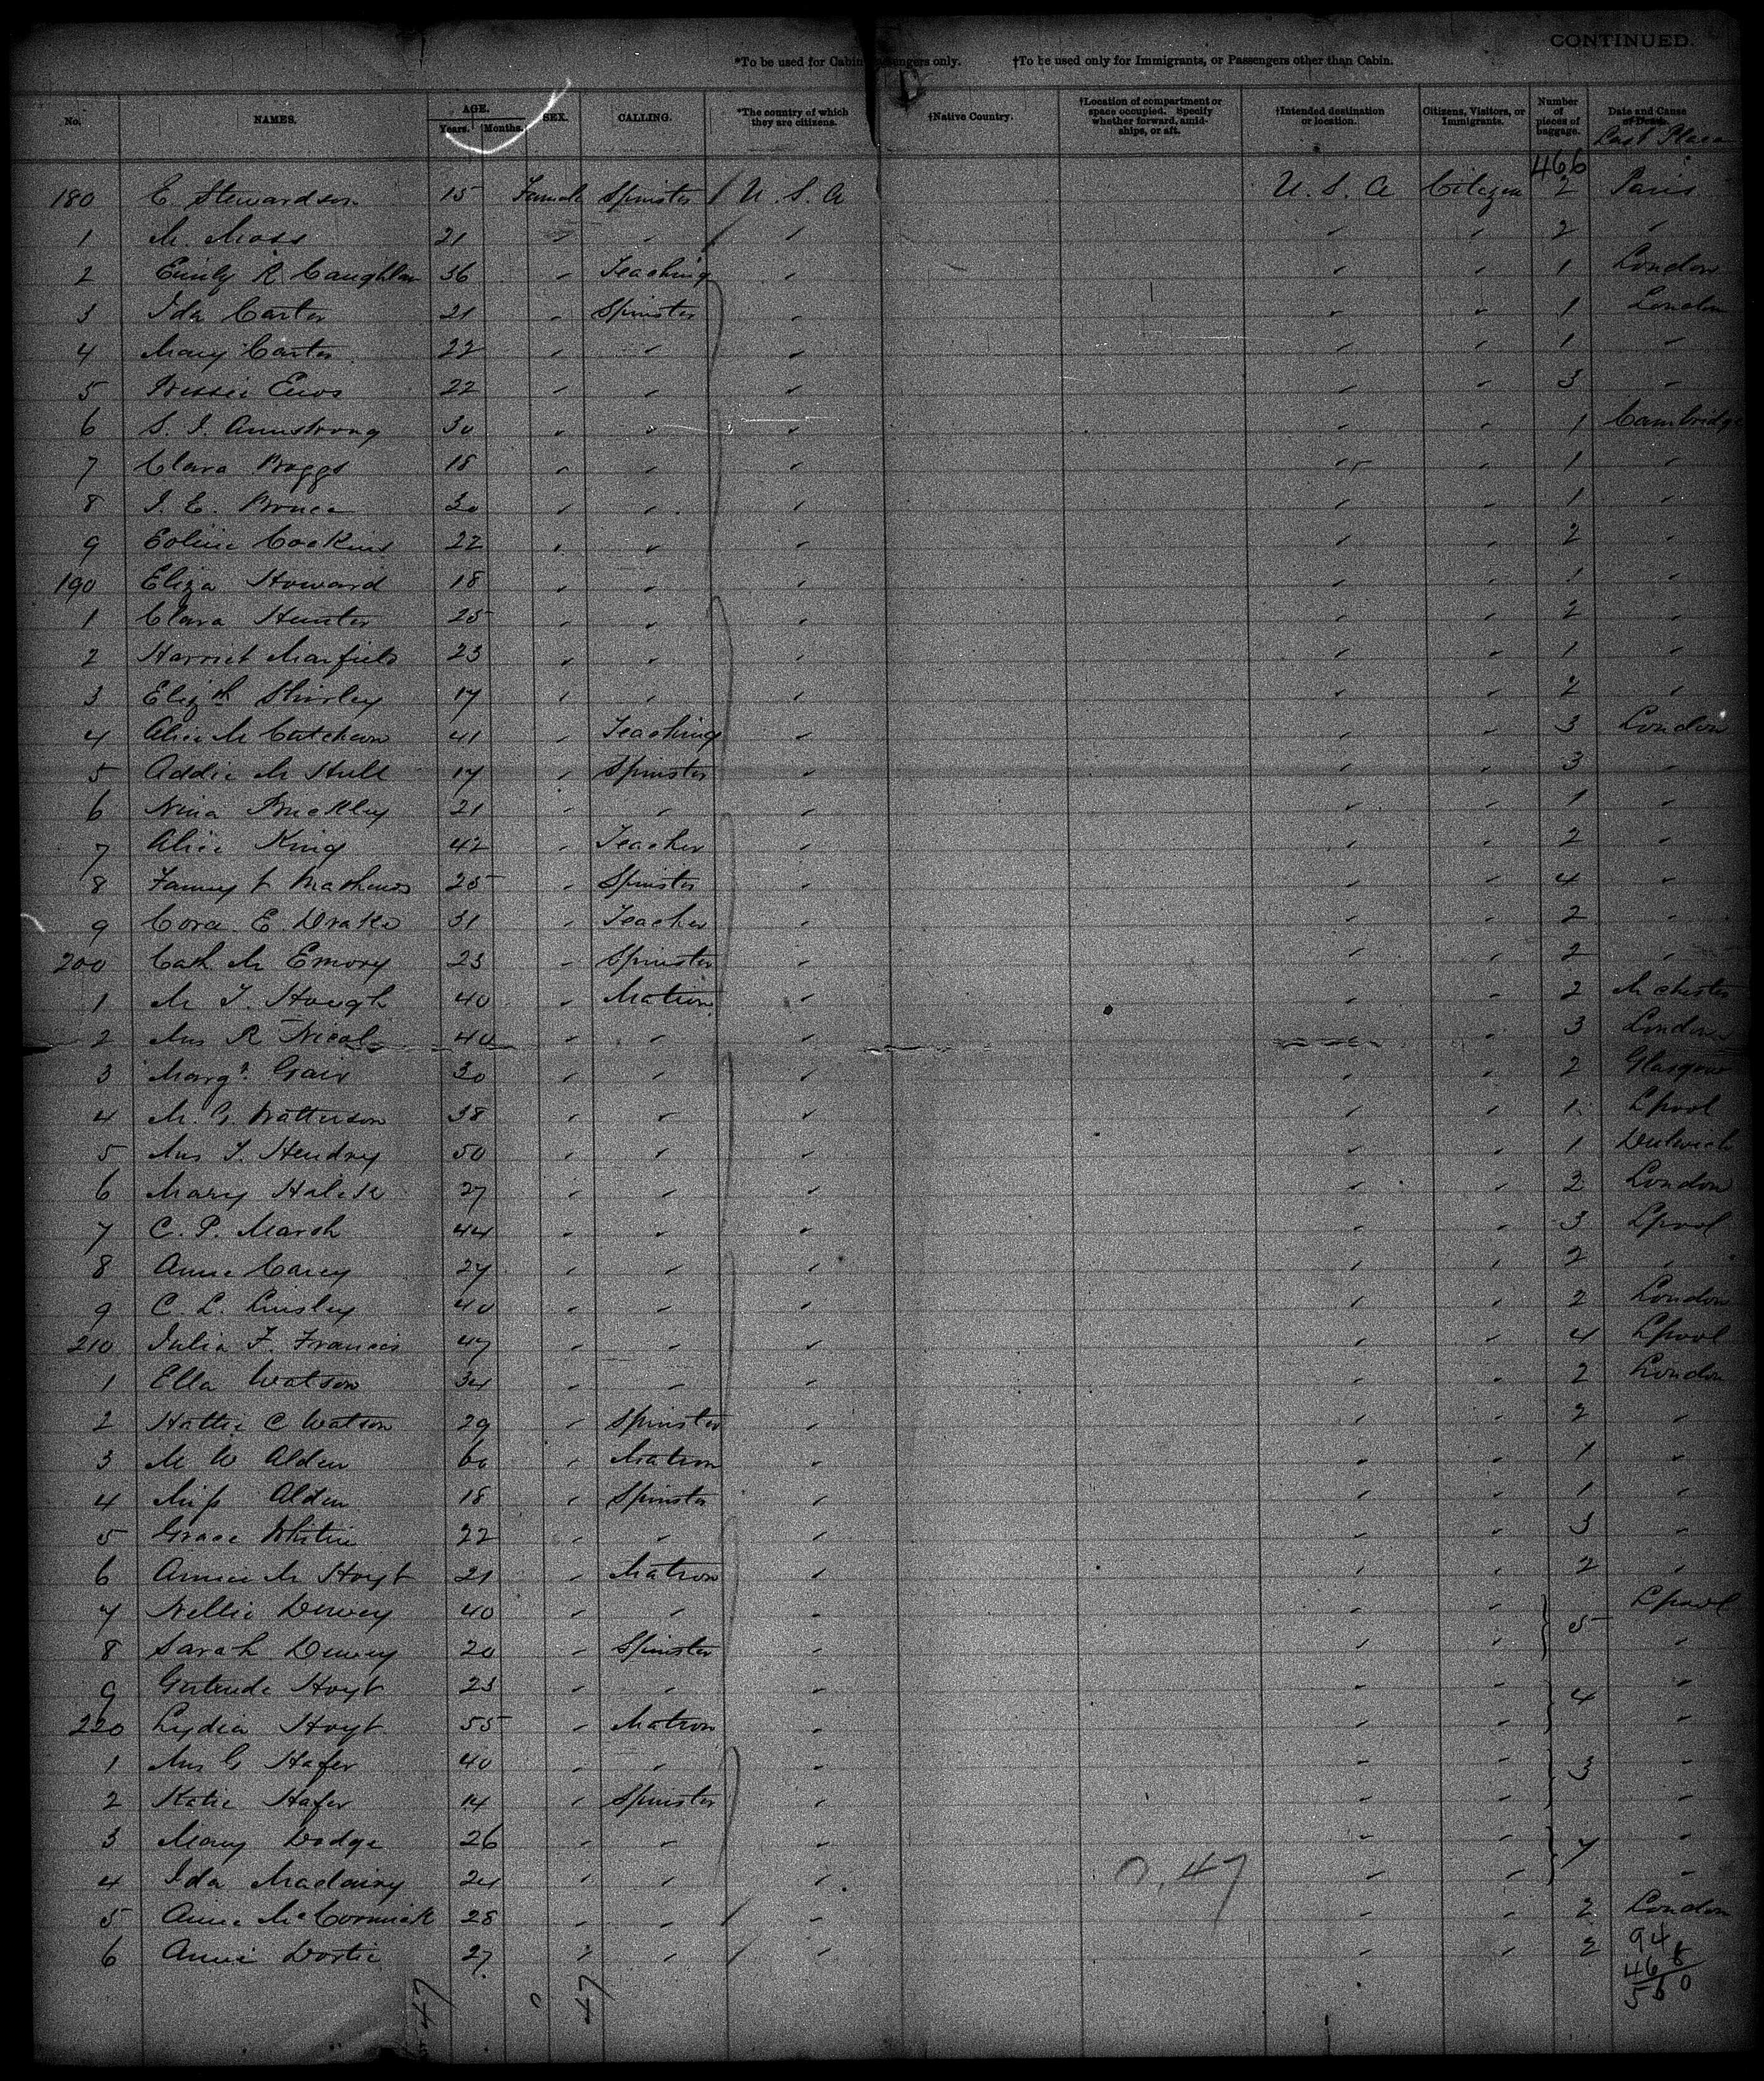 CONTINUED.
*To be used for Cabin Passengers only. †To be used only for Immigrants, or Passengers other than Cabin.
No. NAMES. AGE. Years. Months. SEX. CALLING. *The country of which they are citizens. †Native Country. †Location of compartment or space occupied. Specify whether forward, amidships, or aft. †Intended destination or location. Citizens, Visitors, or Immigrants. Number of pieces of baggage. Date and Cause of Death.
Last Place
466
180 E Stewardson 15 Female Spinster U.S.A U.S.A Citizen 2 Paris
1 M. Moss 21 " " " " " 2 "
2 Emily R. Caughlan 36 " Teaching " " " 1 London
3 Ida Carter 21 " Spinster " " " 1 London
4 Mary Carter 22 " " " " " 1 "
5 Bessie Enos 22 " " " " " 3 "
6 S. I. Armstrong 30 " " " " " 1 Cambridge
7 Clara Boggs 18 " " " " " 1 "
8 I. E. Bruce 30 " " " " " 1 "
9 Cockins 22 " " " " " 2 "
190 Eliza Howard 18 " " " " " 1 "
1 Clara Hunter 25 " " " " " 2 "
2 Harriet Marfield 23 " " " " " 1 "
3 Elizth Shirley 17 " " " " " 2 "
4 Alice McCutcheon 41 " Teaching " " " 3 London
5 Addie M Hull 17 " Spinster " " " 3 "
6 Nina Buckley 21 " " " " " 1 "
7 Alice King 42 " Teacher " " " 2 "
8 Fanny L Mathews 25 " Spinster " " " 4 "
9 Cora E Drake 31 " Teacher " " " 2 "
200 Cath M Emory 23 " Spinster " " " 2 "
1 M T. Hough 40 " Matron " " " 2 Mchester
2 Mrs R Nicol 40 " " " " 3 London
3 Margt. Gair 30 " " " " " 2 Glasgow
4 M. G. Watterson 38 " " " " " 1 Lpool
5 Mrs T. Hendry 50 " " " " " 1 Dulwich
6 Mary 27 " " " " " 2 London
7 C. P. Marsh 44 " " " " " 3 Lpool
8 Annie Carey 27 " " " " " 2 "
9 C. L. Linsley 40 " " " " " 2 London
210 Julia F. Francis 47 " " " " " 4 Lpool
1 Ella Watson 34 " " " " " 2 London
2 Hattie C Watson 29 " Spinster " " " 2 "
3 M W Alden 60 " Matron " " " 1 "
4 Miss Alden 18 " Spinster " " " 1 "
5 Grace Whitin 22 " " " " " 3 "
6 Annie M Hoyt 21 " Matron " " " 2 "
7 Nellie Dewey 40 " " " " " 5 Lpool
8 Sarah Dewey 20 " Spinster " " " "
9 Gertrude Hoyt 23 " " " " " 4 "
220 Lydia Hoyt 55 " Matron " " " "
1 Mrs G Hafer 40 " " " " " 3 "
2 Katie Hafer 14 " Spinster " " " "
3 Mary Dodge 26 " " " " " 7 "
4 Ida 24 " " " " " "
5 Annie McCormick 28 " " " " " 2 London
6 Annie Dostie 27 " " " " " 2
0.47
94
466
560
47 0 47